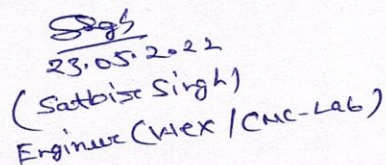 23.05.2022
(Satbise Singh)
Engineer (Hex / CMC-Lab)